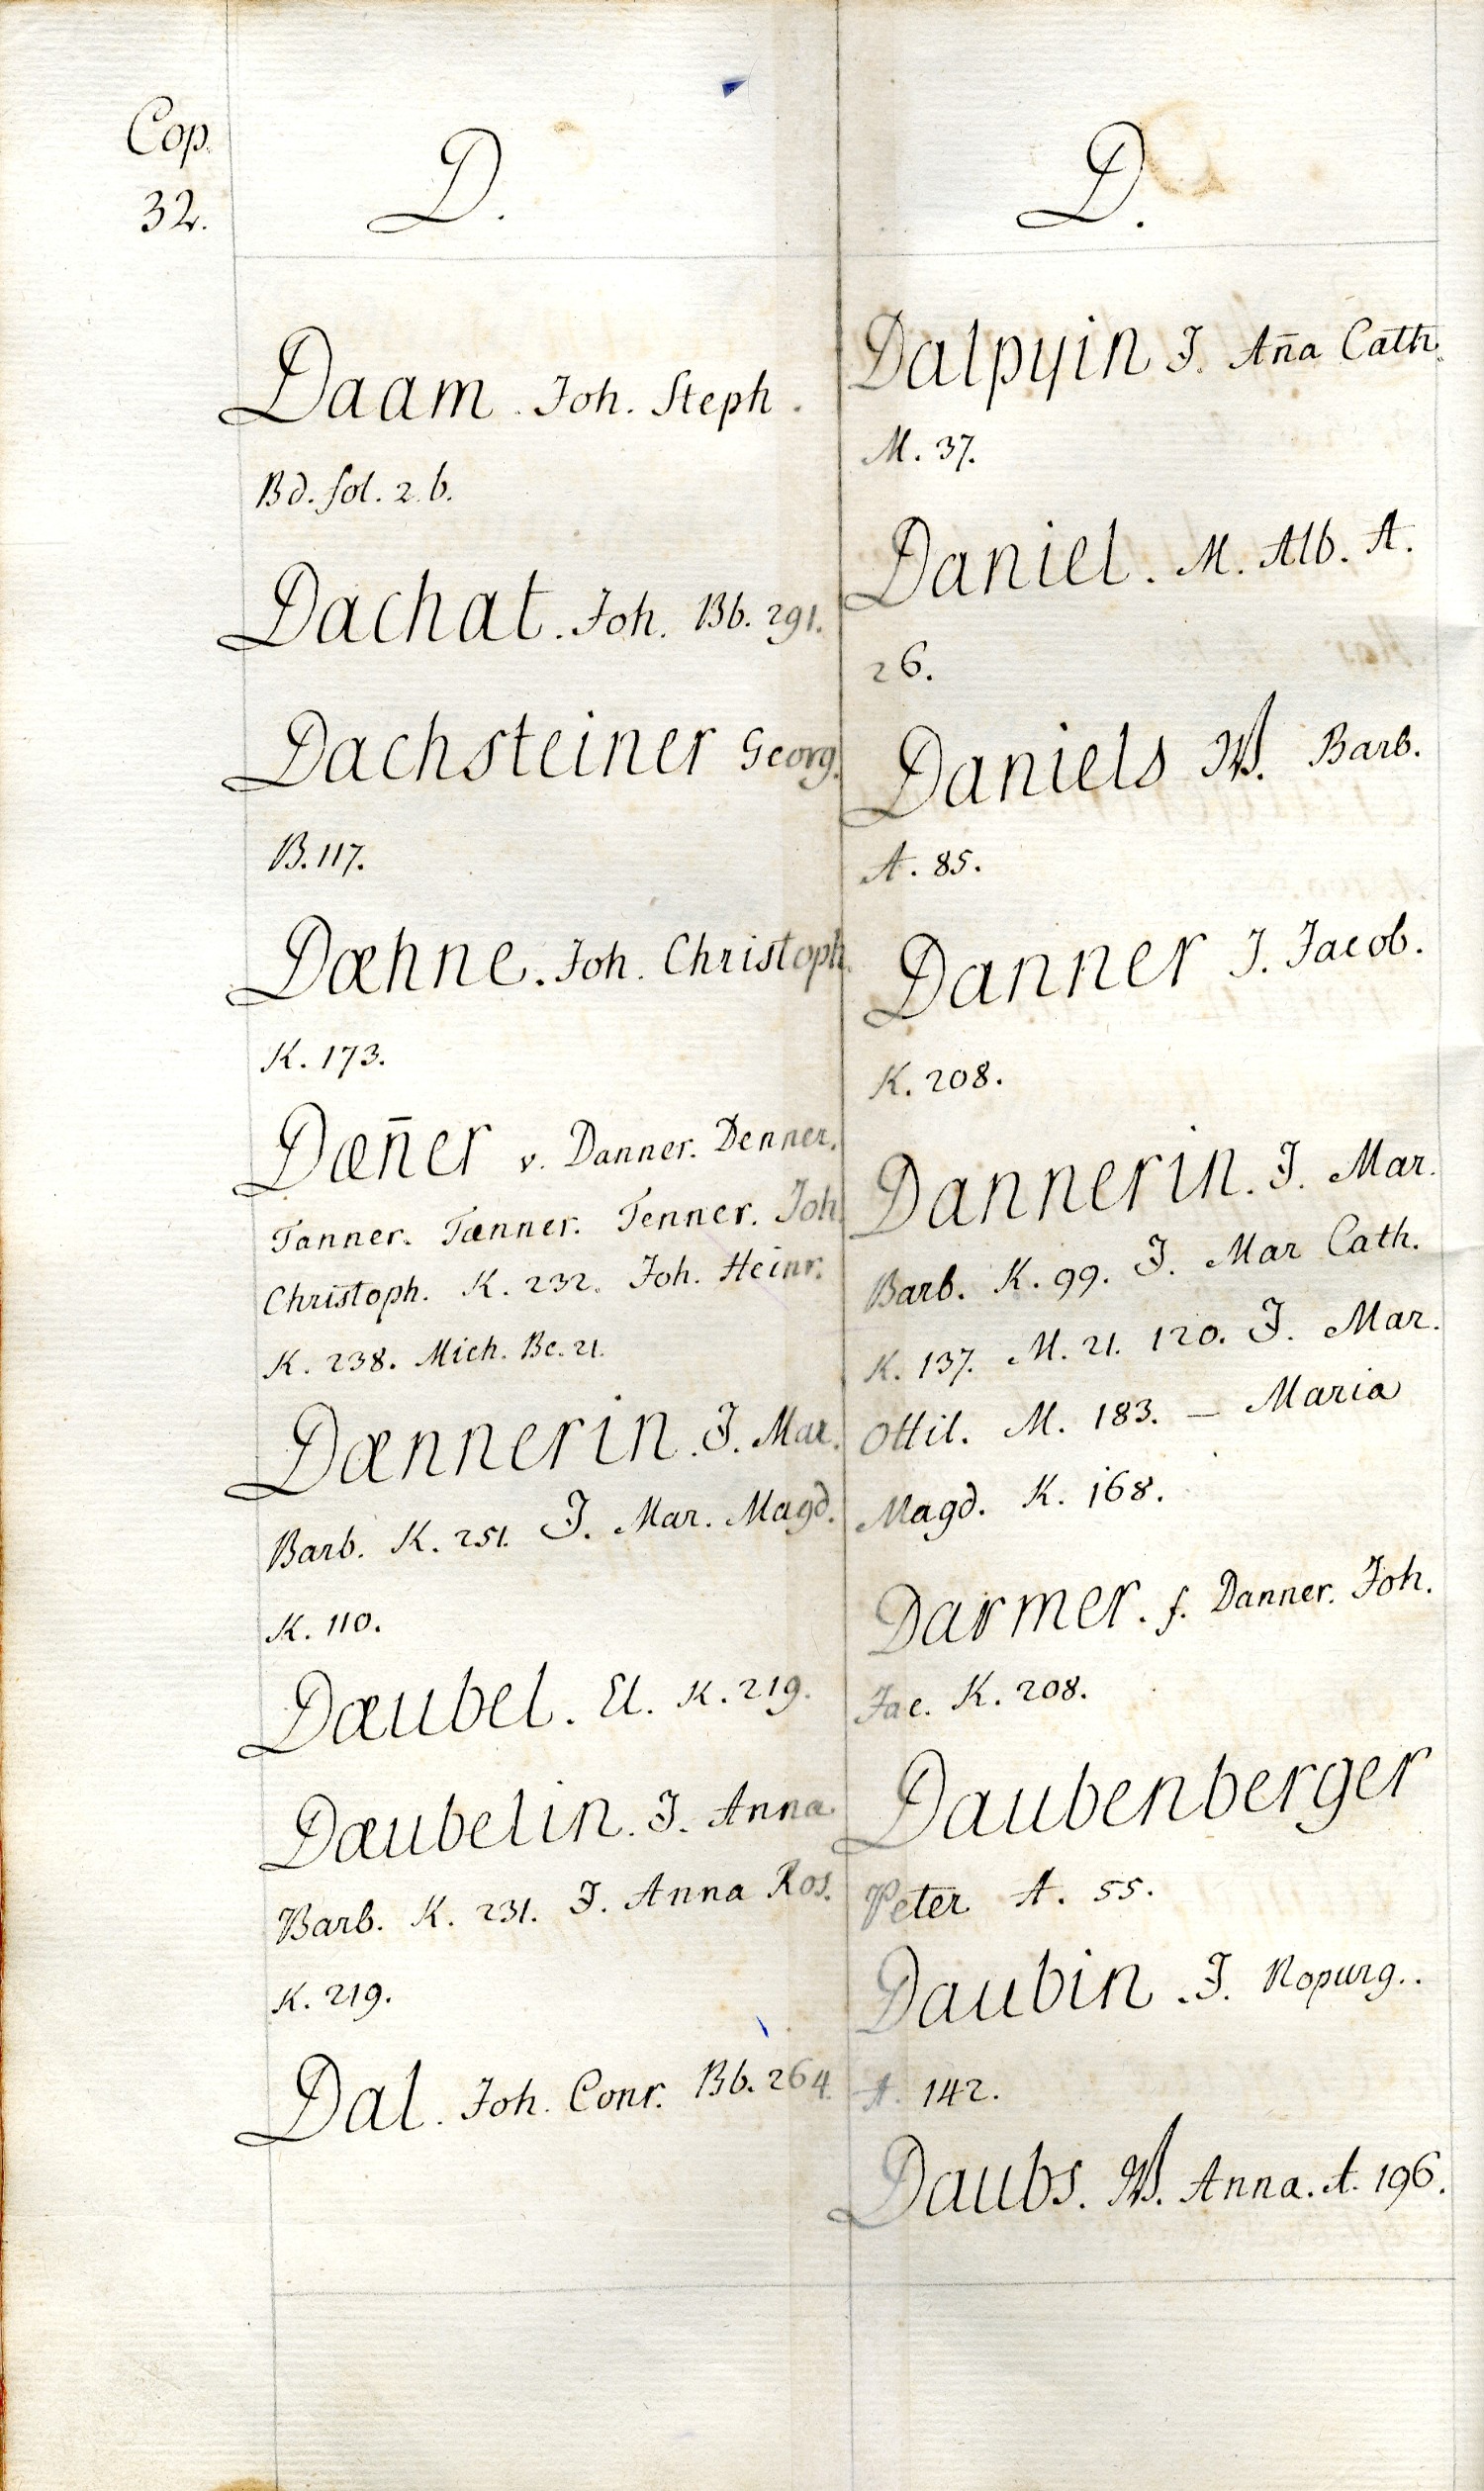 Cop.
32.
D.
Daam. Joh. Steph.
Bd. fol. 2. b.
Dachat. Joh. Bb. 291.
Dachsteiner Georg.
B. 117.
Dæhne. Joh. Christoph.
K. 173.
Dæñer v. Danner. Denner.
Tanner. Tænner. Tenner. Joh.
Christoph. K. 232. Joh. Heinr.
K. 238. Mich. Bc. 21.
Dænnerin. J. Mar.
Barb. K. 251. J. Mar. Magd.
K. 110.
Dæubel. El. K. 219.
Dæubelin. J. Anna
Barb. K. 231. J. Anna Ros.
K. 219.
Dal. Joh. Conr. Bb. 264.
D.
Dalpyin J. Aña Cath.
M. 37.
Daniel. M. Alb. A.
26.
Daniels W. Barb.
A. 85.
Danner J. Jacob.
K. 208.
Dannerin. J. Mar.
Barb. K. 99. J. Mar Cath.
K. 137. M. 21. 120. J. Mar.
Ottil. M. 183. — Maria
Magd. K. 168.
Darmer. f. Danner. Joh.
Jac. K. 208.
Daubenberger
Peter A. 55.
Daubin. J.
A. 142.
Daubs. W. Anna. A. 196.